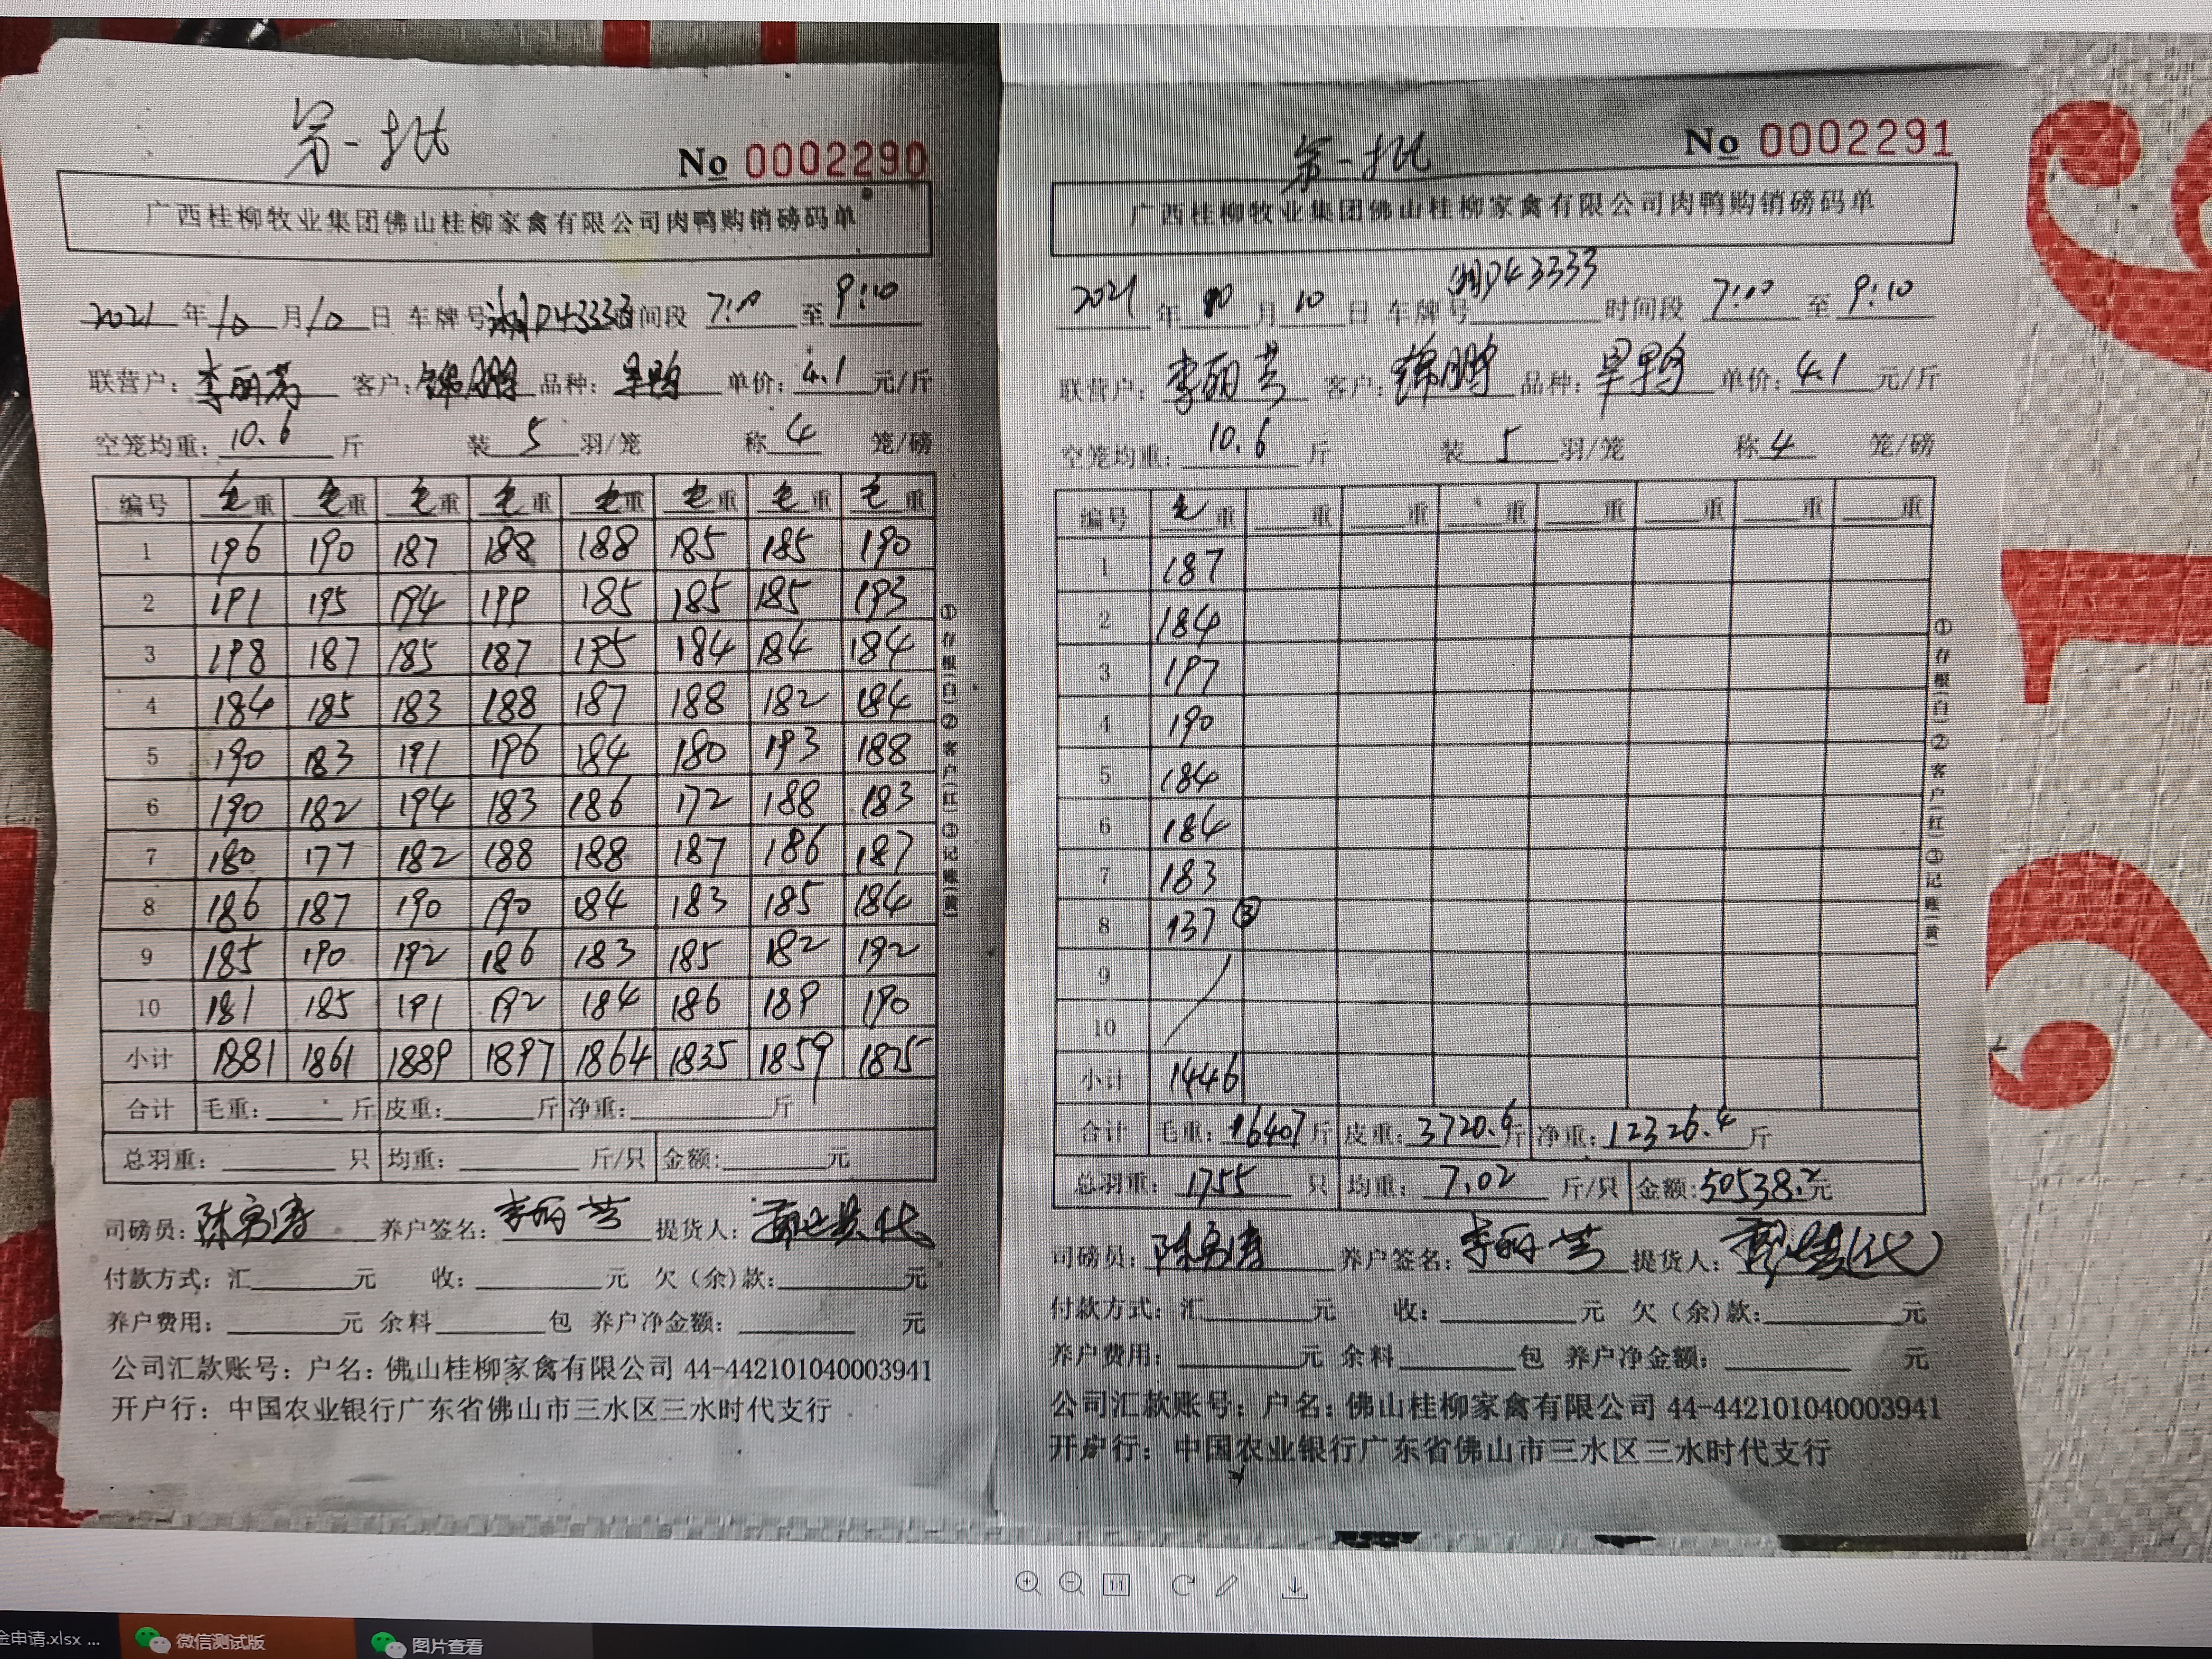 第一批
No 0002290
广西桂柳牧业集团佛山桂柳家禽有限公司肉鸭购销磅码单
2021年10月10日 车牌号湘D43333时间段 7:10至9:10
联营户:李丽芳 客户:锦鹏 品种:旱鸭 单价:4.1元/斤
空笼均重:10.6斤 装5羽/笼 称4笼/磅
编号 毛重 毛重 毛重 毛重 毛重 毛重 毛重 毛重
1 196 190 187 188 188 185 185 190
2 191 195 194 199 185 185 185 193
3 198 187 185 187 195 184 184 184
4 184 185 183 188 187 188 182 184
5 190 183 191 196 184 180 193 188
6 190 182 194 183 186 172 188 183
7 180 177 182 188 188 187 186 187
8 186 187 190 190 184 183 185 184
9 185 190 192 186 183 185 182 192
10 181 185 191 192 184 186 189 190
小计 1881 1861 1889 1897 1864 1835 1859 1875
合计 毛重:斤 皮重:斤 净重:斤
总羽重:只 均重:斤/只 金额:元
司磅员:陈 养户签名:李丽芳 提货人:代
付款方式:汇元 收:元 欠(余)款:元
养户费用:元 余料包 养户净金额:元
公司汇款账号:户名:佛山桂柳家禽有限公司 44-442101040003941
开户行:中国农业银行广东省佛山市三水区三水时代支行
①存根(白)②客户(红)③记账(黄)
第一批
No 0002291
广西桂柳牧业集团佛山桂柳家禽有限公司肉鸭购销磅码单
2021年10月10日 车牌号湘D43333 时间段 7:10至9:10
联营户:李丽芳 客户:锦鹏 品种:旱鸭 单价:4.1元/斤
空笼均重:10.6斤 装5羽/笼 称4笼/磅
编号 毛重 重 重 重 重 重 重 重
1 187
2 184
3 197
4 190
5 184
6 184
7 183
8 137 ③
9
10
小计 1446
合计 毛重:16407斤 皮重:3720.6斤 净重:12326.4斤
总羽重:1755只 均重:7.02斤/只 金额:50538.2元
司磅员:陈 养户签名:李丽芳 提货人:(代)
付款方式:汇元 收:元 欠(余)款:元
养户费用:元 余料包 养户净金额:元
公司汇款账号:户名:佛山桂柳家禽有限公司 44-442101040003941
开户行:中国农业银行广东省佛山市三水区三水时代支行
①存根(白)②客户(红)③记账(黄)
1:1
金申请.xlsx ... 微信测试版 图片查看